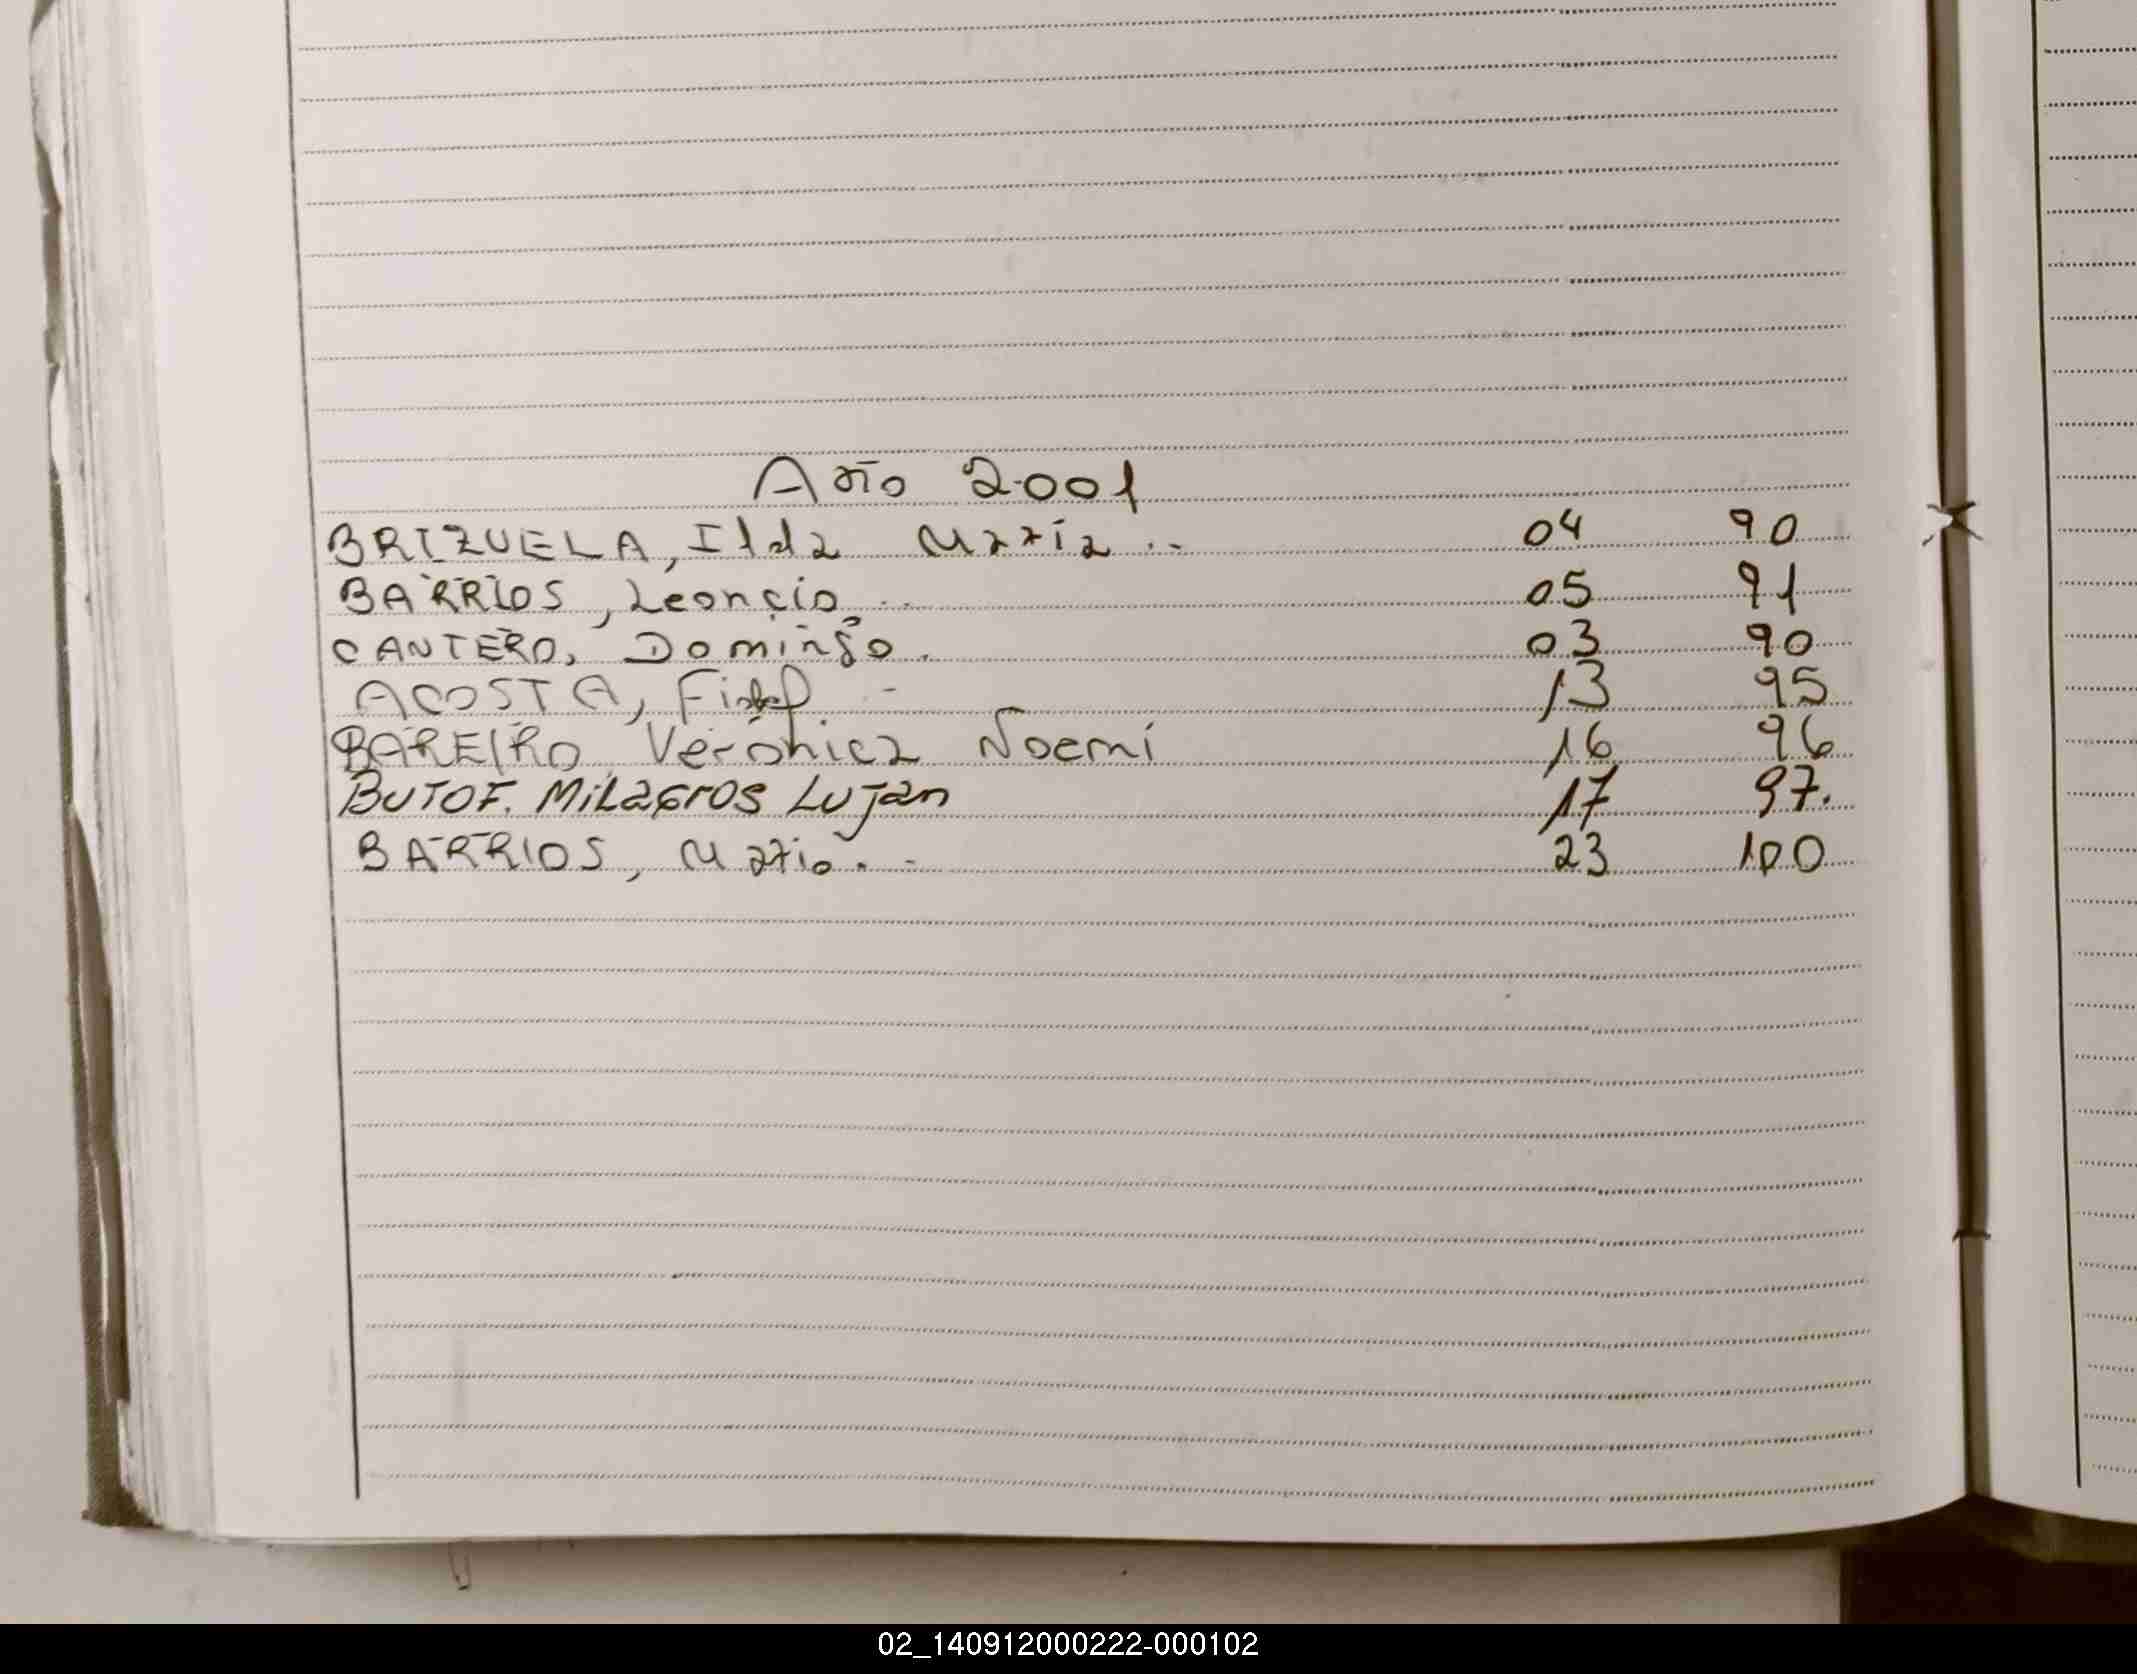 Año 2001
BRIZUELA, Ilda Maria .. 04 90
BARRIOS, Leoncio .. 05 91
CANTERO, Domingo. 03 90
ACOSTA, Fidel. - 13 95
BAREIRO, Veronica Noemí 16 96
BUTOF. Milagros Lujan 17 97.
BARRIOS, Mario. - 23 100
02_140912000222-000102